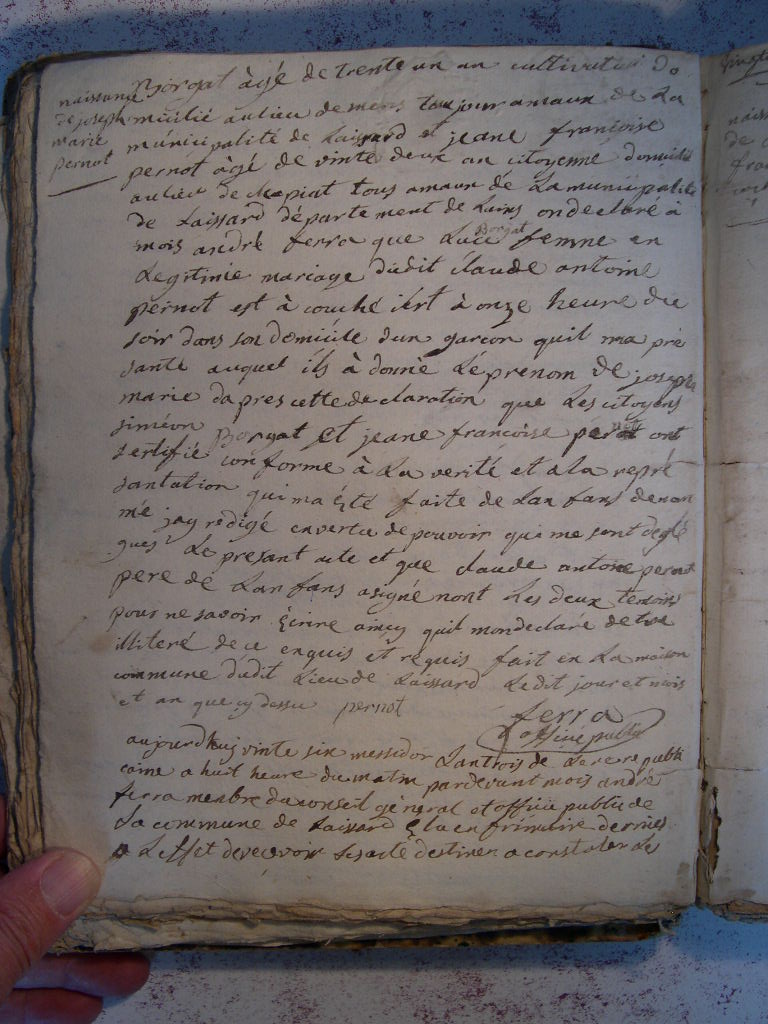 naissance
de joseph
marie
pernot
Borgat àgé de trente un an cultivateur do
micilié au lieu de mens toujour amaux de La
municipalité de Laissard et jeane francoise
pernot àgé de vinte deux an citoyenne domicilié
au lieu de chapiat tous amaux dé La municipalité
de Laissard département de Lains on declaré à
mois andré ferra que Luce Borgat femne en
Legitimie mariage dudit claude antoine
pernot est à couché iért à onze heure du
soir dans son domicile dun garcon quil ma pré
santé auquel ils à donné Le prenom de joseph
marie dapres cette declaration que Les citoyens
siméon Borgat et jeane francoise pernot ont
sertifié conforme à La verité et a la repré
santation qui ma été faite de Lan fans denon
mé jay redigé en vertu de pouvoir qui me sont délé
gues Le presant acte et que claude antone pernot
pere dé Lan fans a signé nont Les deux temoins
pour ne savoir écrire aincy quil mon declaré detre
illiteré de ce enquis et requis fait en La maison
commune dudit Lieu de Laissard Le dit jour et mois
et an que cy dessu pernot
ferra
officié public
aujourdhuy vinte six messidor Lan trois de Lere republi
caine a huit heure du matin pardevant mois andré
ferra menbre du conseil géneral et officié public de
La commune de Laissard élu en frimaire dernies
a Leffet de recevoir Les acte destinen a constater Les
vingt
nais
de
fra